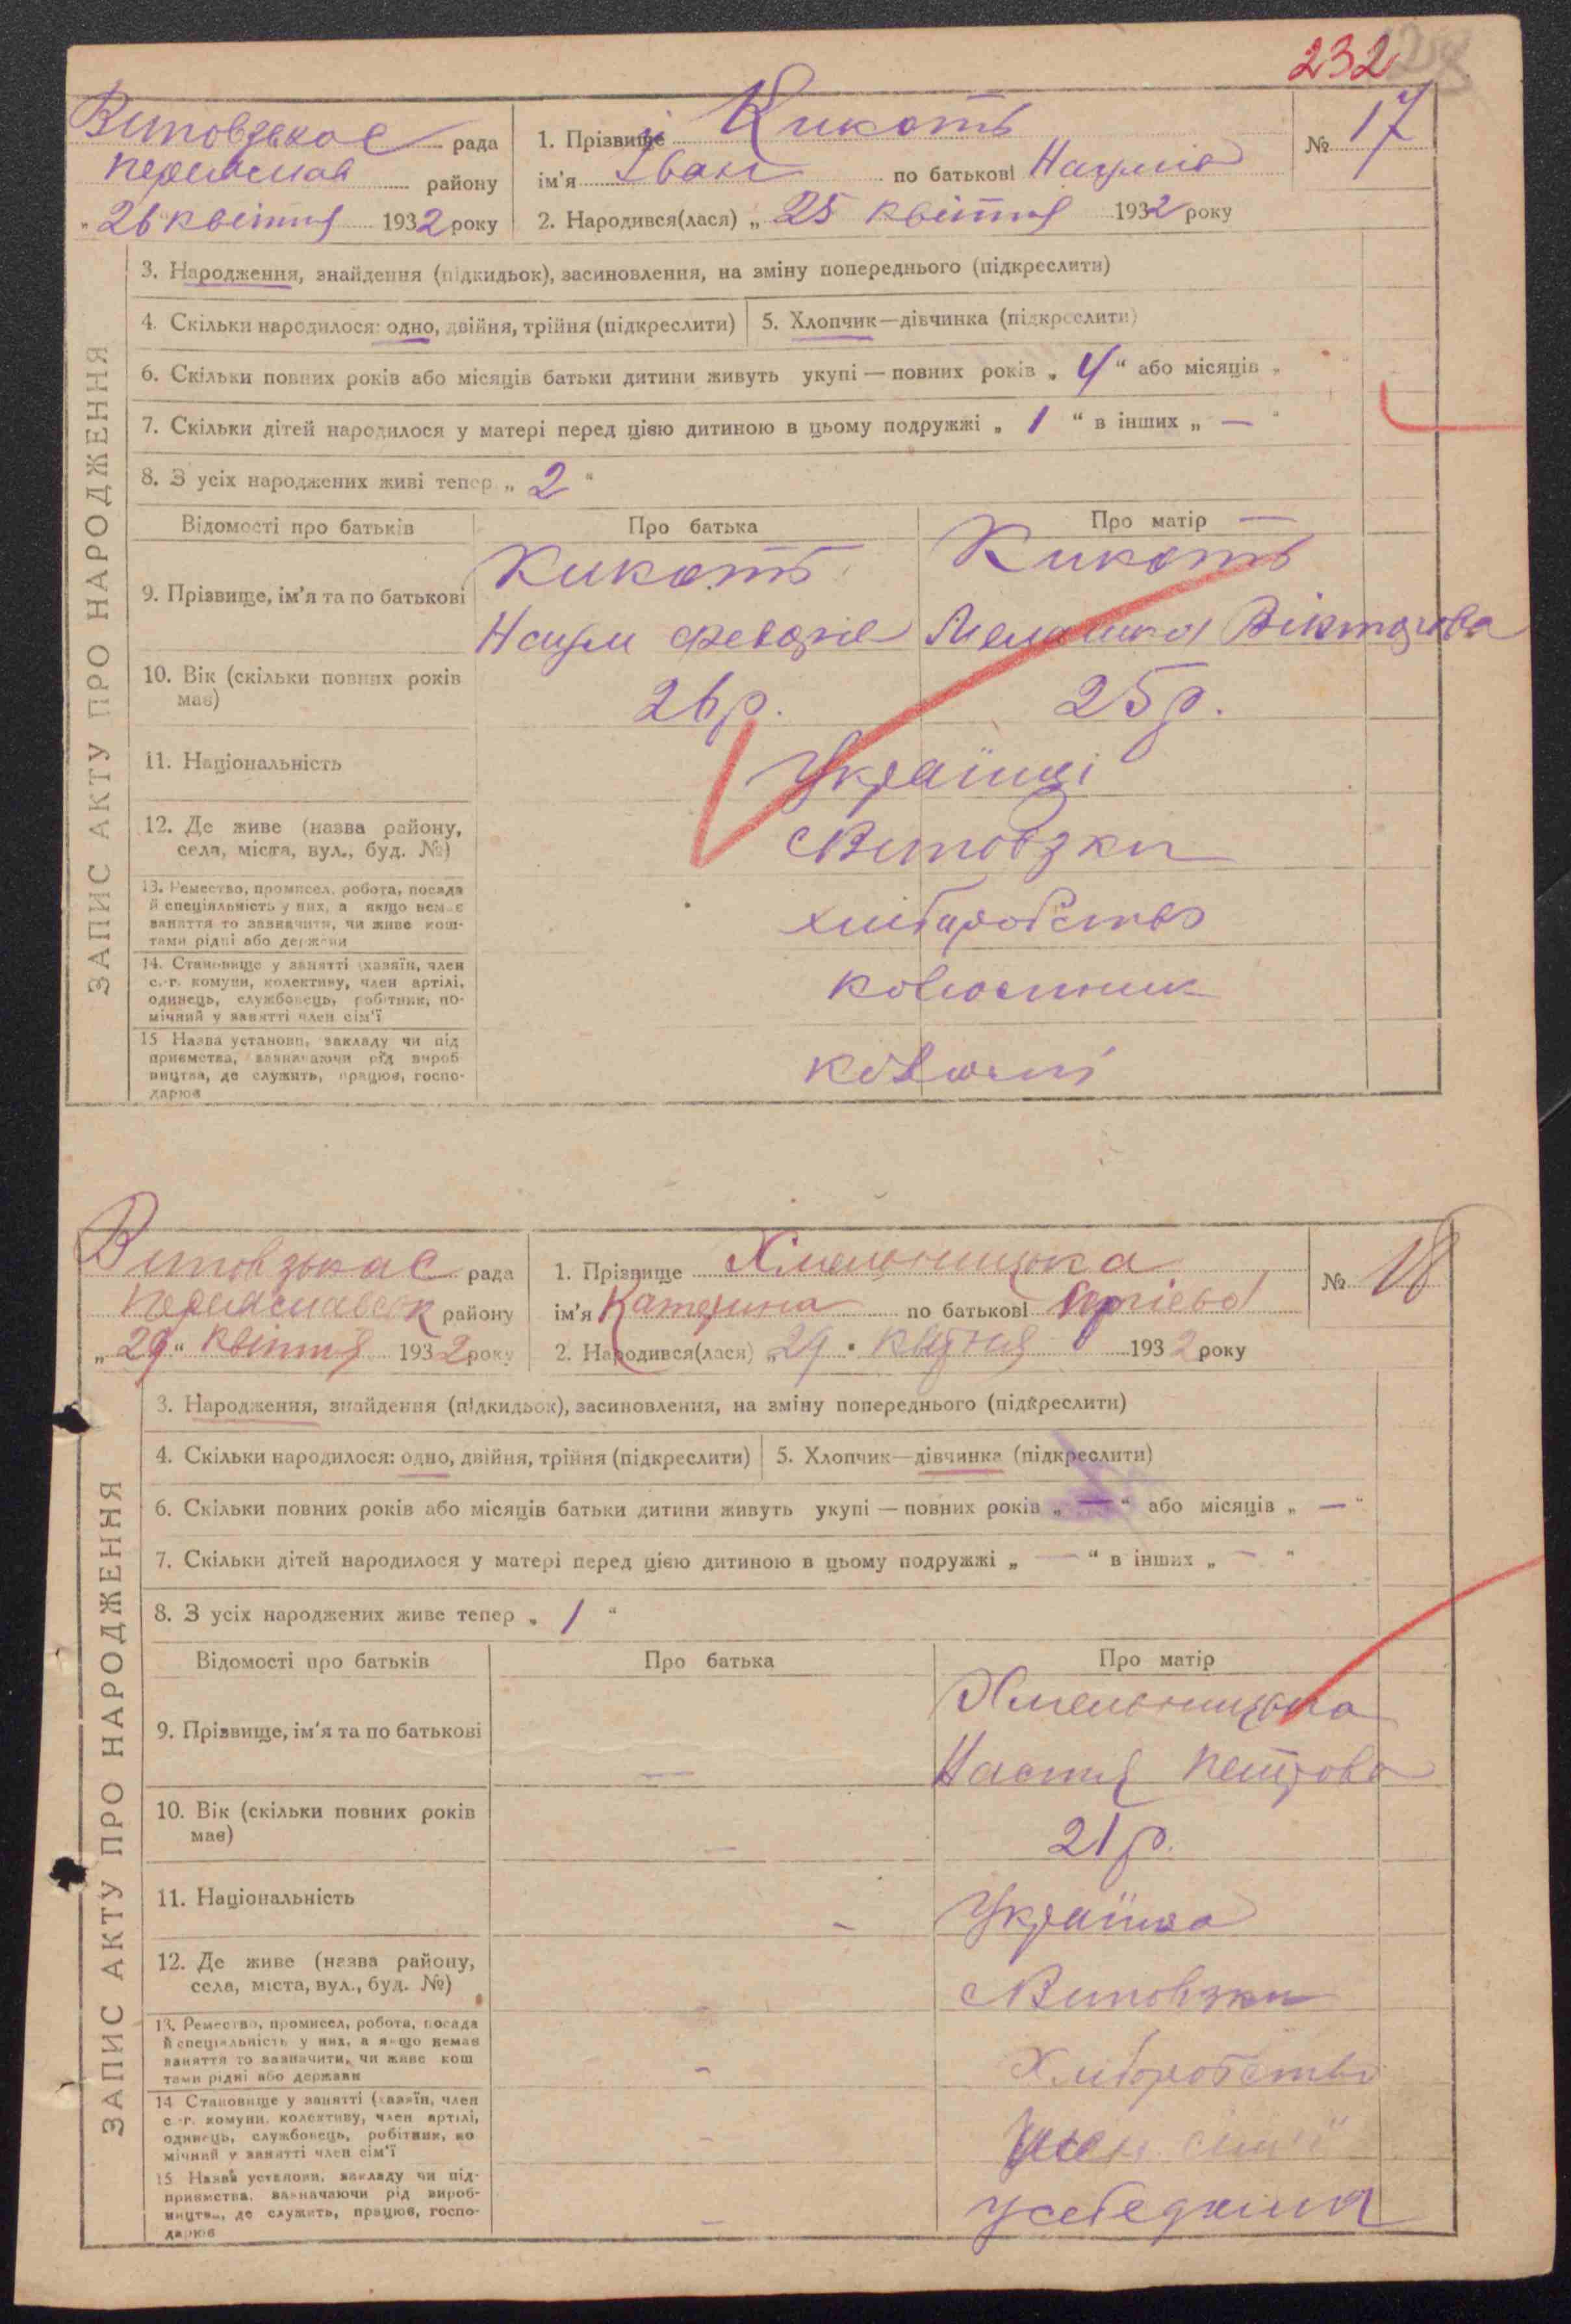 232
Витовзькае рада
Переяслав району
„ 26 квітня 1932 року
1. Прізвище Кикоть
ім'я Іван по батькові Наумів
2. Народився(лася) „ 25 квітня 1932 року
№ 17
ЗАПИС АКТУ ПРО НАРОДЖЕННЯ
3. Народження, знайдення (підкидьок), засиновлення, на зміну попереднього (підкреслити)
4. Скільки народилося: одно, двійня, трійня (підкреслити) 5. Хлопчик—дівчинка (підкреслити)
6. Скільки повних років або місяців батьки дитини живуть укупі — повних років „ 4 “ або місяців „
7. Скільки дітей народилося у матері перед цією дитиною в цьому подружжі „ 1 “ в інших „ — “
8. З усіх народжених живі тепер „ 2 “
Відомості про батьків Про батька Про матір
9. Прізвище, ім'я та по батькові
Кикоть Кикоть
Наум Федорів Мелашка Вікторова
10. Вік (скільки повних років
має)
26 р. 25 р.
11. Національність Українці
12. Де живе (назва району,
села, міста, вул., буд. №)
с Витовзки
13. Ремество, промисел, робота, посада
й спеціяльність у них, а якщо немає
заняття то зазначити, чи живе кош-
тами рідні або держави
хліборобство
14. Становище у занятті (хазяїн, член
с.-г. комуни, колективу, член артілі,
одинець, службовець, робітник, по-
мічний у занятті член сім'ї
15 Назва установи, закладу чи під
приємства, зазначаючи рід вироб
ництва, де служить, працює, госпо-
дарює
Витовзькае рада
Переяславськ району
„ 29 “ квітня 1932 року
1. Прізвище Хмельницька
ім'я Катерина по батькові Сергієва
2. Народився(лася) „ 29 “ квітня 1932 року
№ 18
ЗАПИС АКТУ ПРО НАРОДЖЕННЯ
3. Народження, знайдення (підкидьок), засиновлення, на зміну попереднього (підкреслити)
4. Скільки народилося: одно, двійня, трійня (підкреслити) 5. Хлопчик—дівчинка (підкреслити)
6. Скільки повних років або місяців батьки дитини живуть укупі — повних років „ — “ або місяців „ — “
7. Скільки дітей народилося у матері перед цією дитиною в цьому подружжі „ — “ в інших „ — “
8. З усіх народжених живе тепер „ 1 “
Відомості про батьків Про батька Про матір
9. Прізвище, ім'я та по батькові
Хмельницька
— Настя Петрова
10. Вік (скільки повних років
має)
— 21 р.
11. Національність — Українка
12. Де живе (назва району,
села, міста, вул., буд. №)
с Витовзки
13. Ремество, промисел, робота, посада
й спеціяльність у них, а якщо немає
заняття то зазначити, чи живе кош
тами рідні або держави
— Хліборобство
14 Становище у занятті (хазяїн, член
с-г. комуни, колективу, член артілі,
одинець, службовець, робітник, по
мічний у занятті член сім'ї
— член сім'ї
15 Назва установи, закладу чи під-
приємства, зазначаючи рід вироб-
ництва, де служить, працює, госпо-
дарює
—